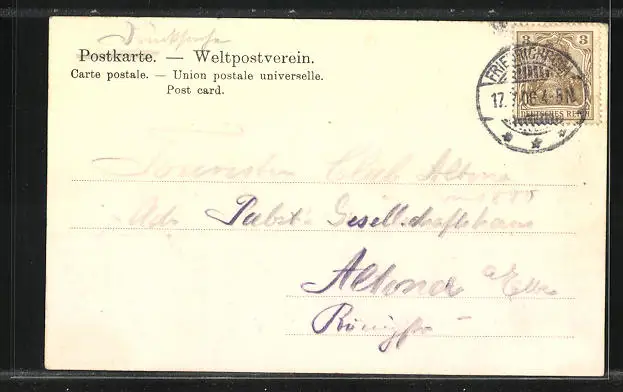 Drucksache
Postkarte. — Weltpostverein.
Carte postale. — Union postale universelle.
Post card.
3 3
DEUTSCHES REICH
17. 06 4-5N
Touristen Club Altona
Adr Pabst Gesellschaftshaus
Altona a/Elbe
Königstr